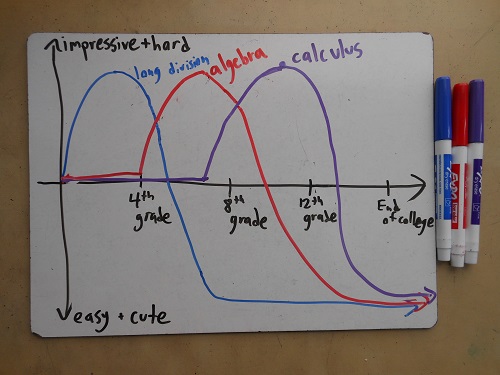 impressive + hard
long division
algebra
calculus
4th
grade
8th
grade
12th
grade
End
of college
easy + cute
EXPO